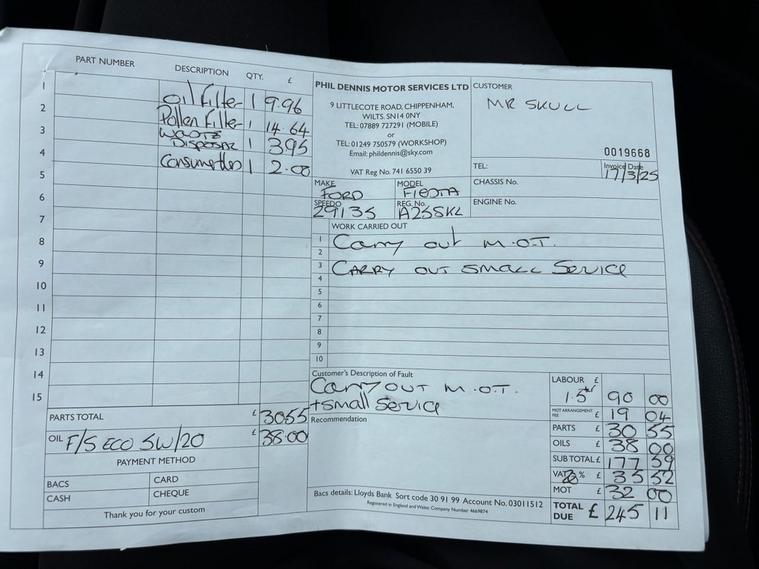 PART NUMBER DESCRIPTION QTY. £
1 Oil Filter 1 9.96
2 Pollen Filter 1 14.64
3 Waste Disposal 1 3 95
4 Consumables 1 2.00
5
6
7
8
9
10
11
12
13
14
15
PARTS TOTAL £ 30 55
OIL F/S ECO 5W/20 £ 38.00
PAYMENT METHOD
BACS CARD
CASH CHEQUE
Thank you for your custom
PHIL DENNIS MOTOR SERVICES LTD
9 LITTLECOTE ROAD, CHIPPENHAM,
WILTS. SN14 0NY
TEL: 07889 727291 (MOBILE)
or
TEL: 01249 750579 (WORKSHOP)
Email: phildennis@sky.com
VAT Reg No. 741 6550 39
CUSTOMER
MR SKULL
0019668
TEL: Invoice Date
17/3/25
MAKE MODEL CHASSIS No.
FORD FIESTA
SPEEDO REG. No. ENGINE No.
29135 A25SKL
WORK CARRIED OUT
1 Carry out M.O.T.
2
3 CARRY OUT SMALL Service
4
5
6
7
8
9
10
Customer's Description of Fault
Carry OUT M.O.T.
+ Small Service
Recommendation
Bacs details: Lloyds Bank Sort code 30 91 99 Account No. 03011512
Registered in England and Wales: Company Number: 4669874
LABOUR £
1.5 90 00
MOT ARRANGEMENT FEE £ 19 04
PARTS £ 30 55
OILS £ 38 00
SUB TOTAL £ 177 59
VAT 20 % £ 35 52
MOT £ 32 00
TOTAL DUE £ 245 11